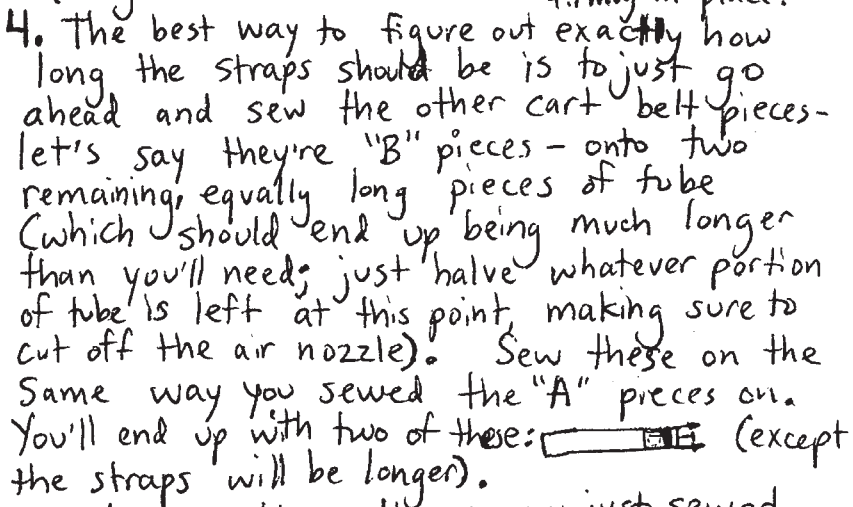 firmly in place.
4. The best way to figure out exactly how
long the straps should be is to just go
ahead and sew the other cart belt pieces-
let's say they're "B" pieces - onto two
remaining, equally long pieces of tube
(which should end up being much longer
than you'll need; just halve whatever portion
of tube is left at this point, making sure to
cut off the air nozzle). Sew these on the
same way you sewed the "A" pieces on.
You'll end up with two of these: (except
the straps will be longer).
just sewed